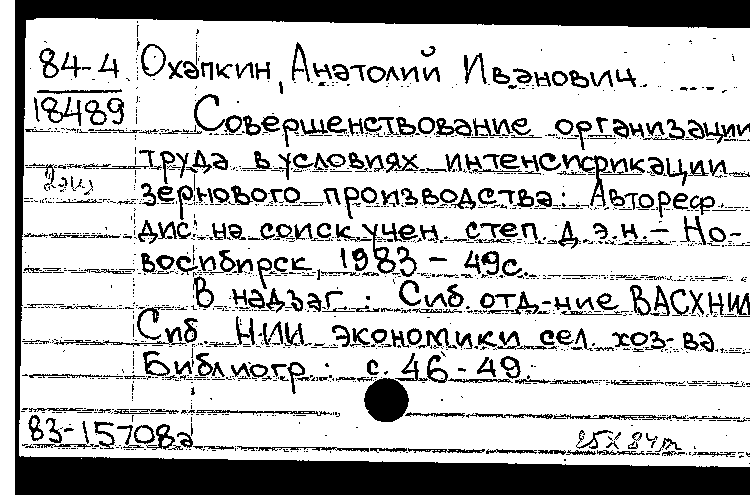 84-4 Охапкин, Анатолий Иванович.
18489 Совершенствование организации
труда в условиях интенсификации
2 экз
зернового производства: Автореф.
дис. на соиск. учен. степ. д.э.н. - Но-
восибирск, 1983 - 49с.
В надзаг.: Сиб. отд-ние ВАСХНИЛ
Сиб НИИ экономики сел. хоз-ва
Библиогр.: с. 46-49.
83-15708а